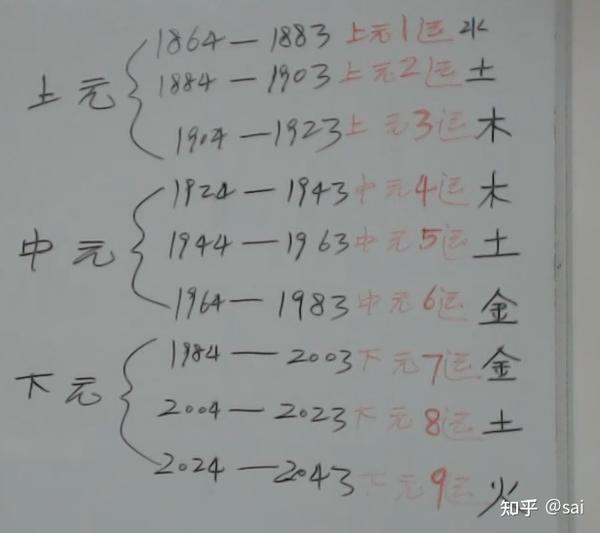 上元
1864—1883上元1运水
1884—1903上元2运土
1904—1923上元3运木
中元
1924—1943中元4运木
1944—1963中元5运土
1964—1983中元6运金
下元
1984—2003下元7运金
2004—2023下元8运土
2024—2043下元9运火
知乎 @sai